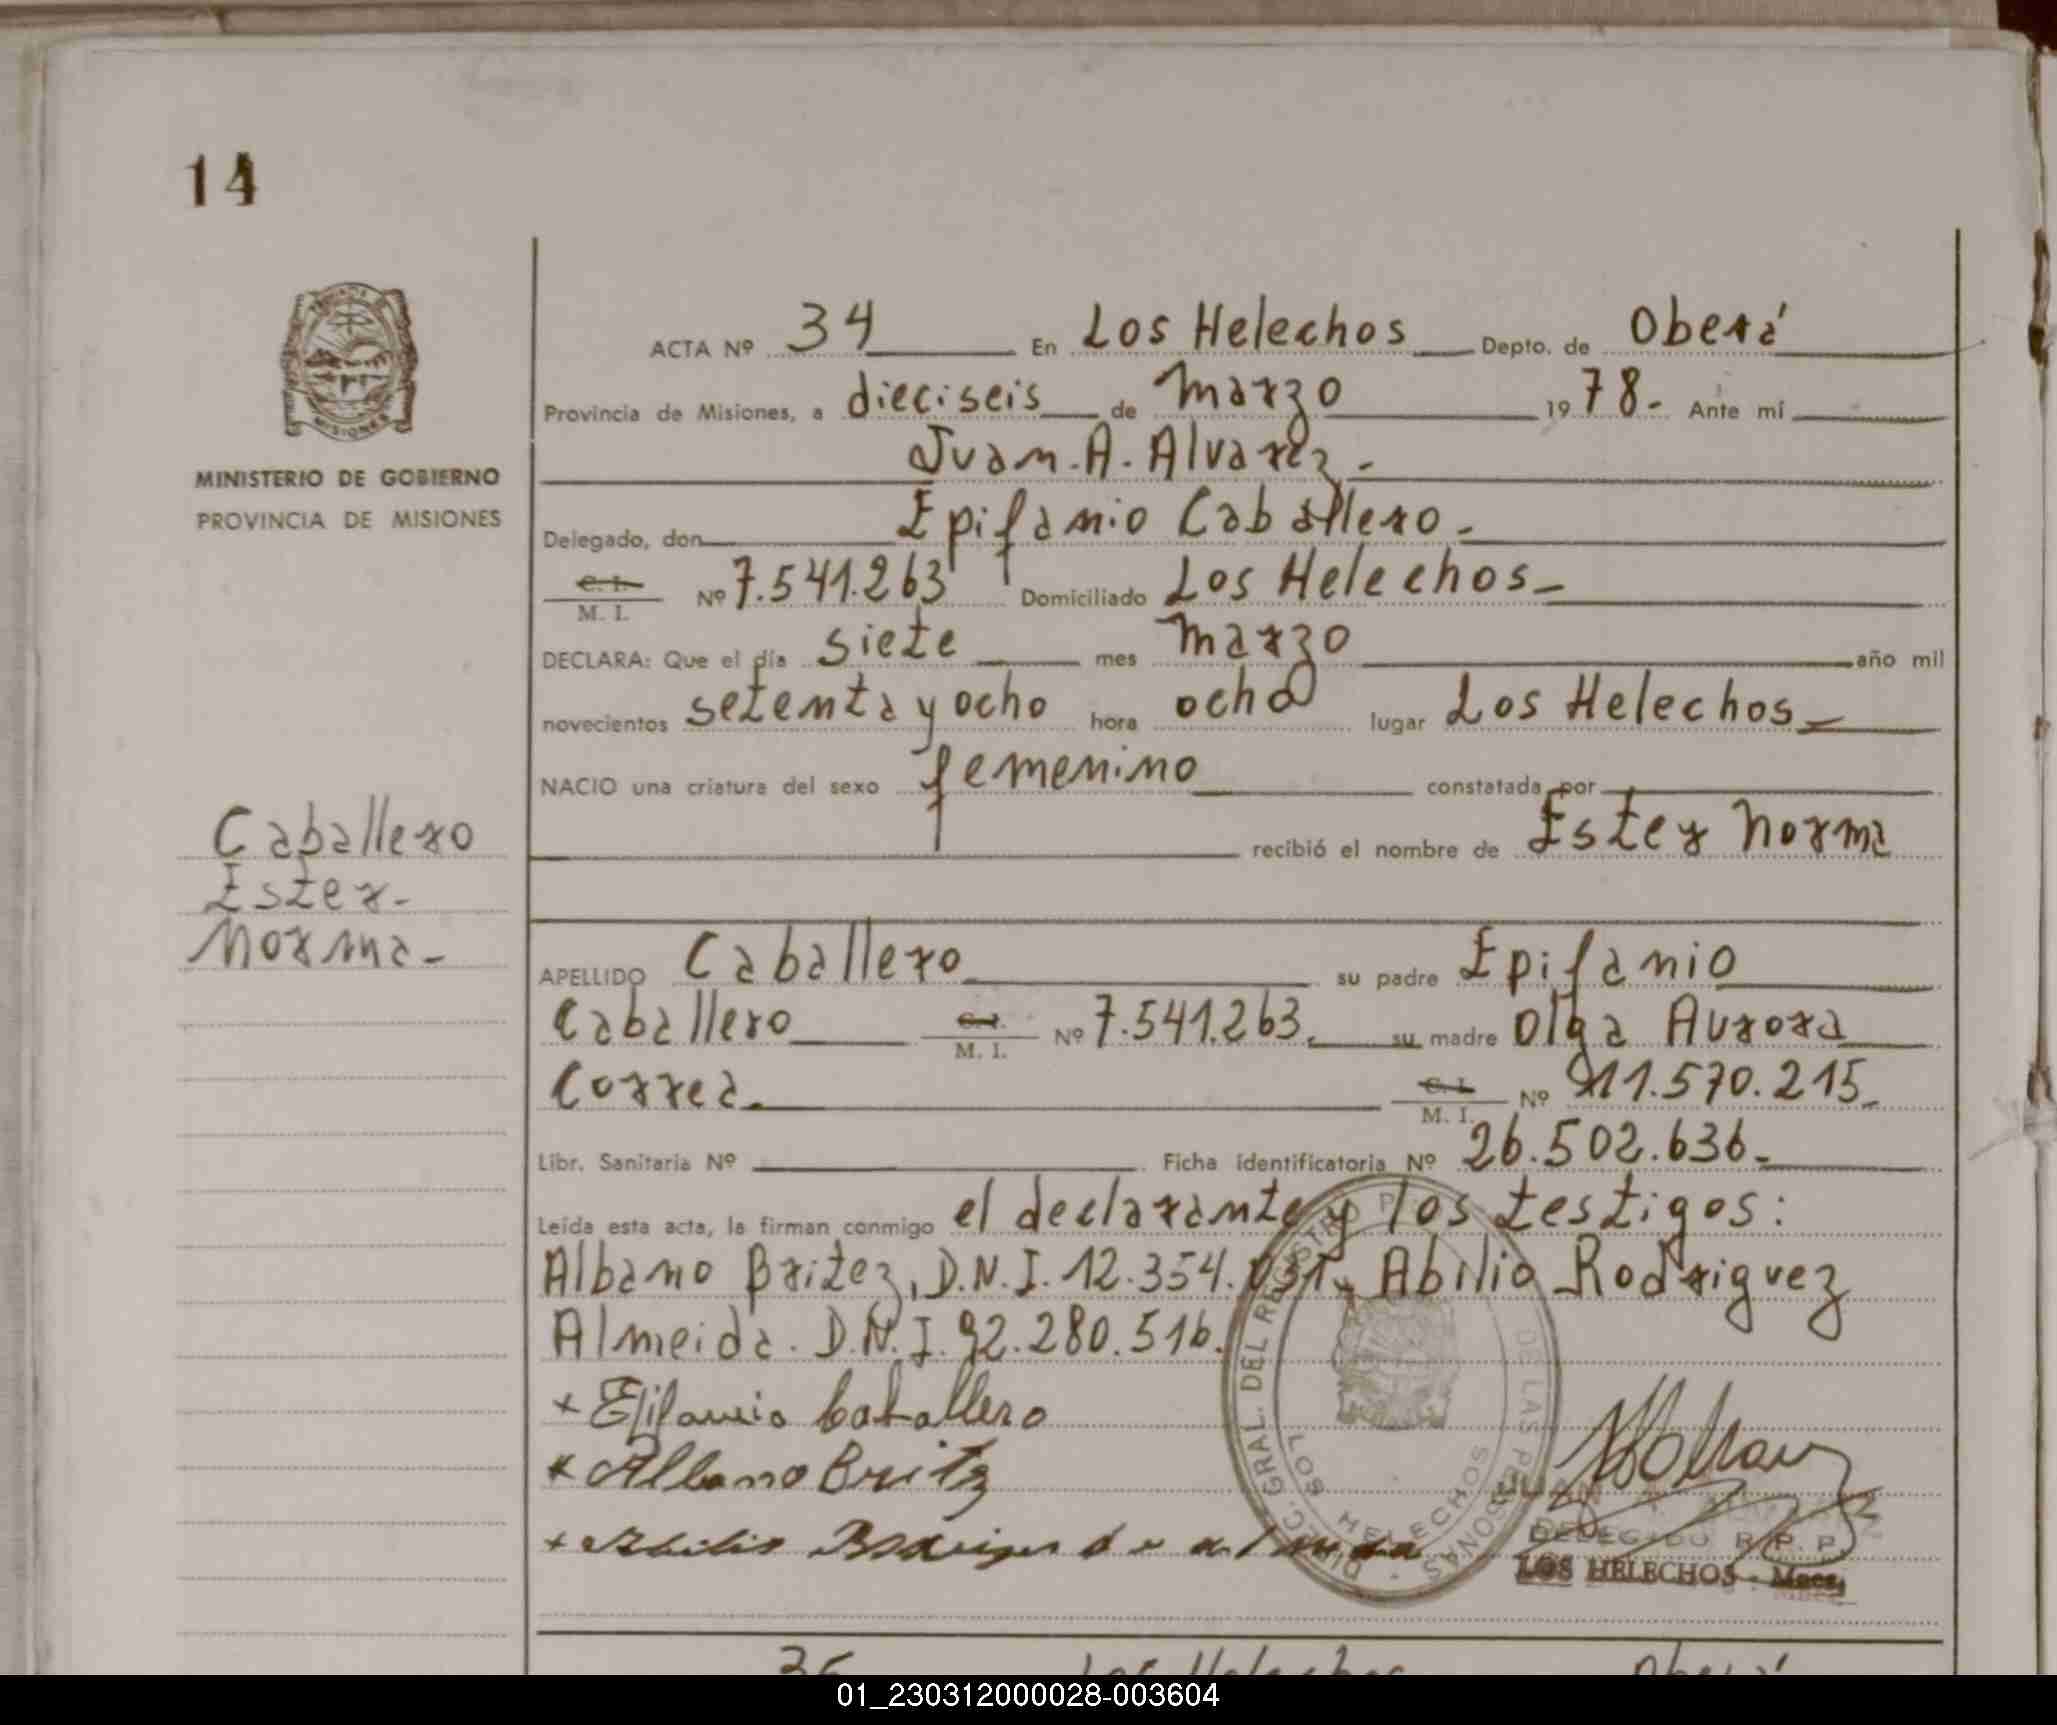 14
MISIONES
MINISTERIO DE GOBIERNO
PROVINCIA DE MISIONES
Caballero
Ester.
Norma.
ACTA Nº 34 En Los Helechos Depto. de Oberá
Provincia de Misiones, a dieciseis de Marzo 1978. Ante mí
Juan. A. Alvarez.
Delegado, don Epifanio Caballero.
C. I.
M. I. Nº 7.541.263 Domiciliado Los Helechos
DECLARA: Que el día siete mes Marzo año mil
novecientos setenta y ocho hora ocho lugar Los Helechos
NACIO una criatura del sexo femenino constatada por
recibió el nombre de Ester Norma
APELLIDO Caballero su padre Epifanio
Caballero C. I. M. I. Nº 7.541.263. su madre Olga Aurora
Correa. C. I. M. I. Nº 11.570.215.
Libr. Sanitaria Nº Ficha identificatoria Nº 26.502.636.
Leída esta acta, la firman conmigo el declarante y los testigos:
Albano Britez, D.N.I. 12.354.031, Abilio Rodriguez
Almeida. D.N.I. 92.280.516.
+ Epifanio Caballero
+ Albano Britz
DIREC. GRAL. DEL REGISTRO P. DE LAS PERSONAS
LOS HELECHOS
DELEGADO R. P. P.
LOS HELECHOS - Mnes.
Los Helechos Oberá
01_230312000028-003604